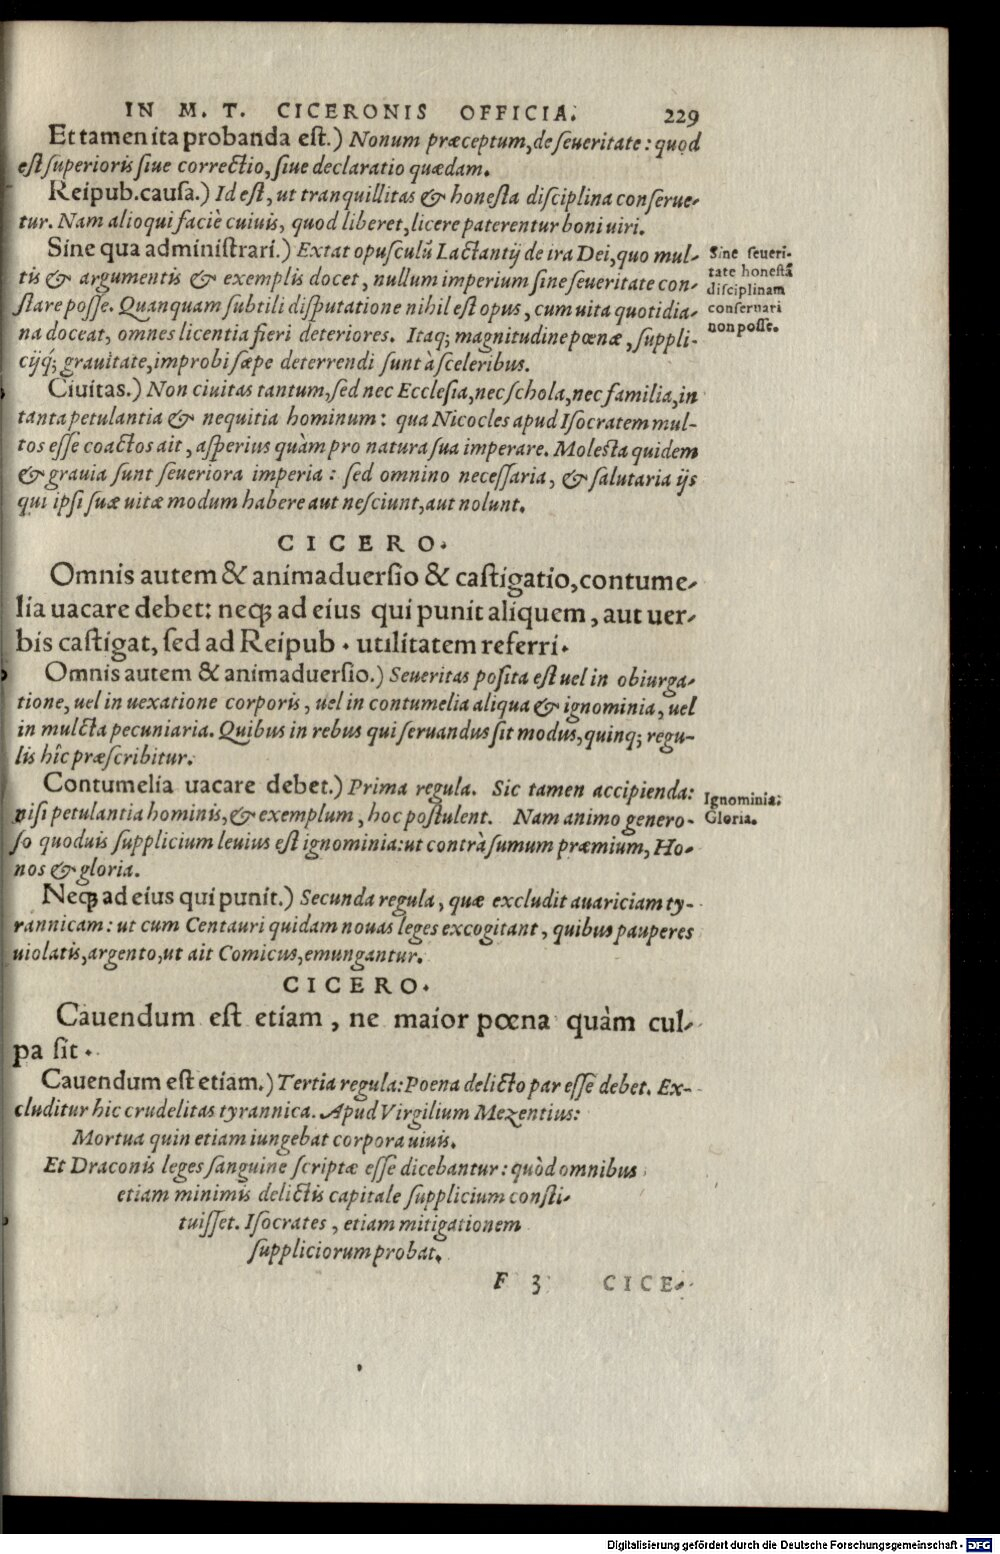 IN M. T. CICERONIS OFFICIA. 229
Et tamen ita probanda est.) Nonum præceptum, de seueritate: quod
est superioris siue correctio, siue declaratio quædam.
Reipub. causa.) Id est, ut tranquillitas & honesta disciplina conserue-
tur. Nam alioqui faciè cuiuis, quod liberet, licere paterentur boni uiri.
Sine qua administrari.) Extat opusculũ Lactantij de ira Dei, quo mul-
tis & argumentis & exemplis docet, nullum imperium sine seueritate con-
stare posse. Quanquam subtili disputatione nihil est opus, cum uita quotidia-
na doceat, omnes licentia fieri deteriores. Itaq; magnitudine pœnæ, suppli-
cijq́; grauitate, improbi sæpe deterrendi sunt à sceleribus.
Sine seueri-
tate honestã
disciplinam
conseruari
non posse.
Ciuitas.) Non ciuitas tantum, sed nec Ecclesia, nec schola, nec familia, in
tanta petulantia & nequitia hominum: qua Nicocles apud Isocratem mul-
tos esse coactos ait, asperius quàm pro natura sua imperare. Molesta quidem
& grauia sunt seueriora imperia: sed omnino necessaria, & salutaria ijs
qui ipsi suæ uitæ modum habere aut nesciunt, aut nolunt.
CICERO.
Omnis autem & animaduersio & castigatio, contume-
lia uacare debet: neq; ad eius qui punit aliquem, aut uer-
bis castigat, sed ad Reipub. utilitatem referri.
Omnis autem & animaduersio.) Seueritas posita est uel in obiurga-
tione, uel in uexatione corporis, uel in contumelia aliqua & ignominia, uel
in mulcta pecuniaria. Quibus in rebus qui seruandus sit modus, quinq; regu-
lis hîc præscribitur.
Contumelia uacare debet.) Prima regula. Sic tamen accipienda:
nisi petulantia hominis, & exemplum, hoc postulent. Nam animo genero-
so quoduis supplicium leuius est ignominia: ut contrà sumum præmium, Ho-
nos & gloria.
Ignominia:
Gloria.
Neq; ad eius qui punit.) Secunda regula, quæ excludit auariciam ty-
rannicam: ut cum Centauri quidam nouas leges excogitant, quibus pauperes
uiolatis, argento, ut ait Comicus, emungantur.
CICERO.
Cauendum est etiam, ne maior pœna quàm cul-
pa sit.
Cauendum est etiam.) Tertia regula: Poena delicto par esse debet. Ex-
cluditur hic crudelitas tyrannica. Apud Virgilium Mezentius:
Mortua quin etiam iungebat corpora uiuis.
Et Draconis leges sanguine scriptæ esse dicebantur: quòd omnibus
etiam minimis delictis capitale supplicium consti-
tuisset. Isocrates, etiam mitigationem
suppliciorum probat.
F 3 CICE-
Digitalisierung gefördert durch die Deutsche Forschungsgemeinschaft - DFG